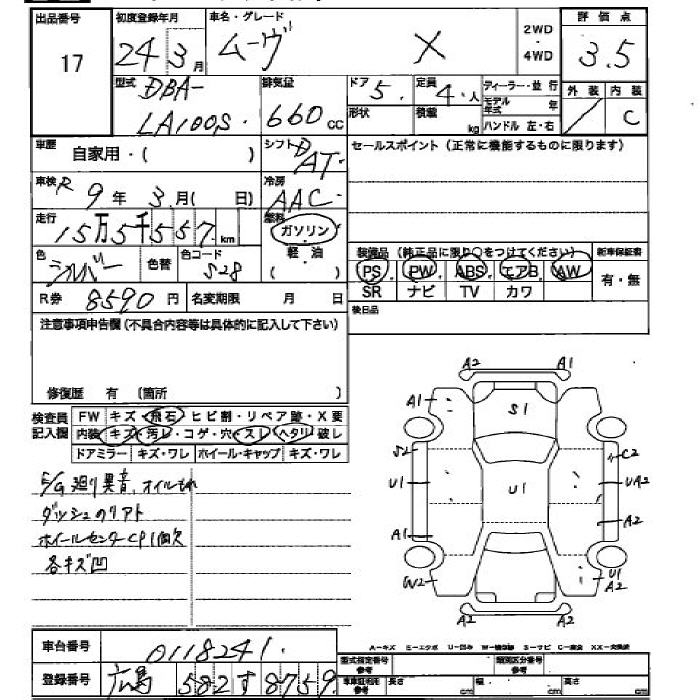 出品番号 初度登録年月 車名・グレード 2WD・4WD 評価点
17 24年3月 ムーヴ X 3.5
型式 DBA-LA100S 排気量 660cc ドア 5 定員 4人 ディーラー・並行 外装 内装
形状 積載 kg モデル年式 年 ハンドル 左・右 C
車歴 自家用・( ) シフト D AT セールスポイント（正常に機能するものに限ります）
車検 R9年3月( 日) 冷房 AAC
走行 15万5千557km 燃料 ガソリン・軽油
色 シルバー 色替 色コード S28 装備品（純正品に限り○をつけてください） 新車保証書
PS PW ABS エアB AW 有・無
SR ナビ TV カワ
R券 8590円 名変期限 月 日 後日品
注意事項申告欄（不具合内容等は具体的に記入して下さい）
修復歴 有（箇所 ）
検査員記入欄 FW キズ・飛石・ヒビ割・リペア跡・X要
内装 キズ・汚レ・コゲ・穴・スレ・ヘタリ・破レ
ドアミラー キズ・ワレ ホイール・キャップ キズ・ワレ
E/G廻り異音、オイルもれ
ダッシュのリアト
ホイールセンターCP1個欠
各キズ凹
A2 A1
A1 S1
S2 C2
U1 U1 UA2
A1 A2
W2 U1 A2
A2 A2
A-キズ E-エクボ U-凹み W-補修跡 S-サビ C-腐食 XX-交換済
車台番号 0118241
型式指定番号 類別区分番号
登録番号 広島 582 す 8759
車庫証明用参考 長さ cm 幅 cm 高さ cm